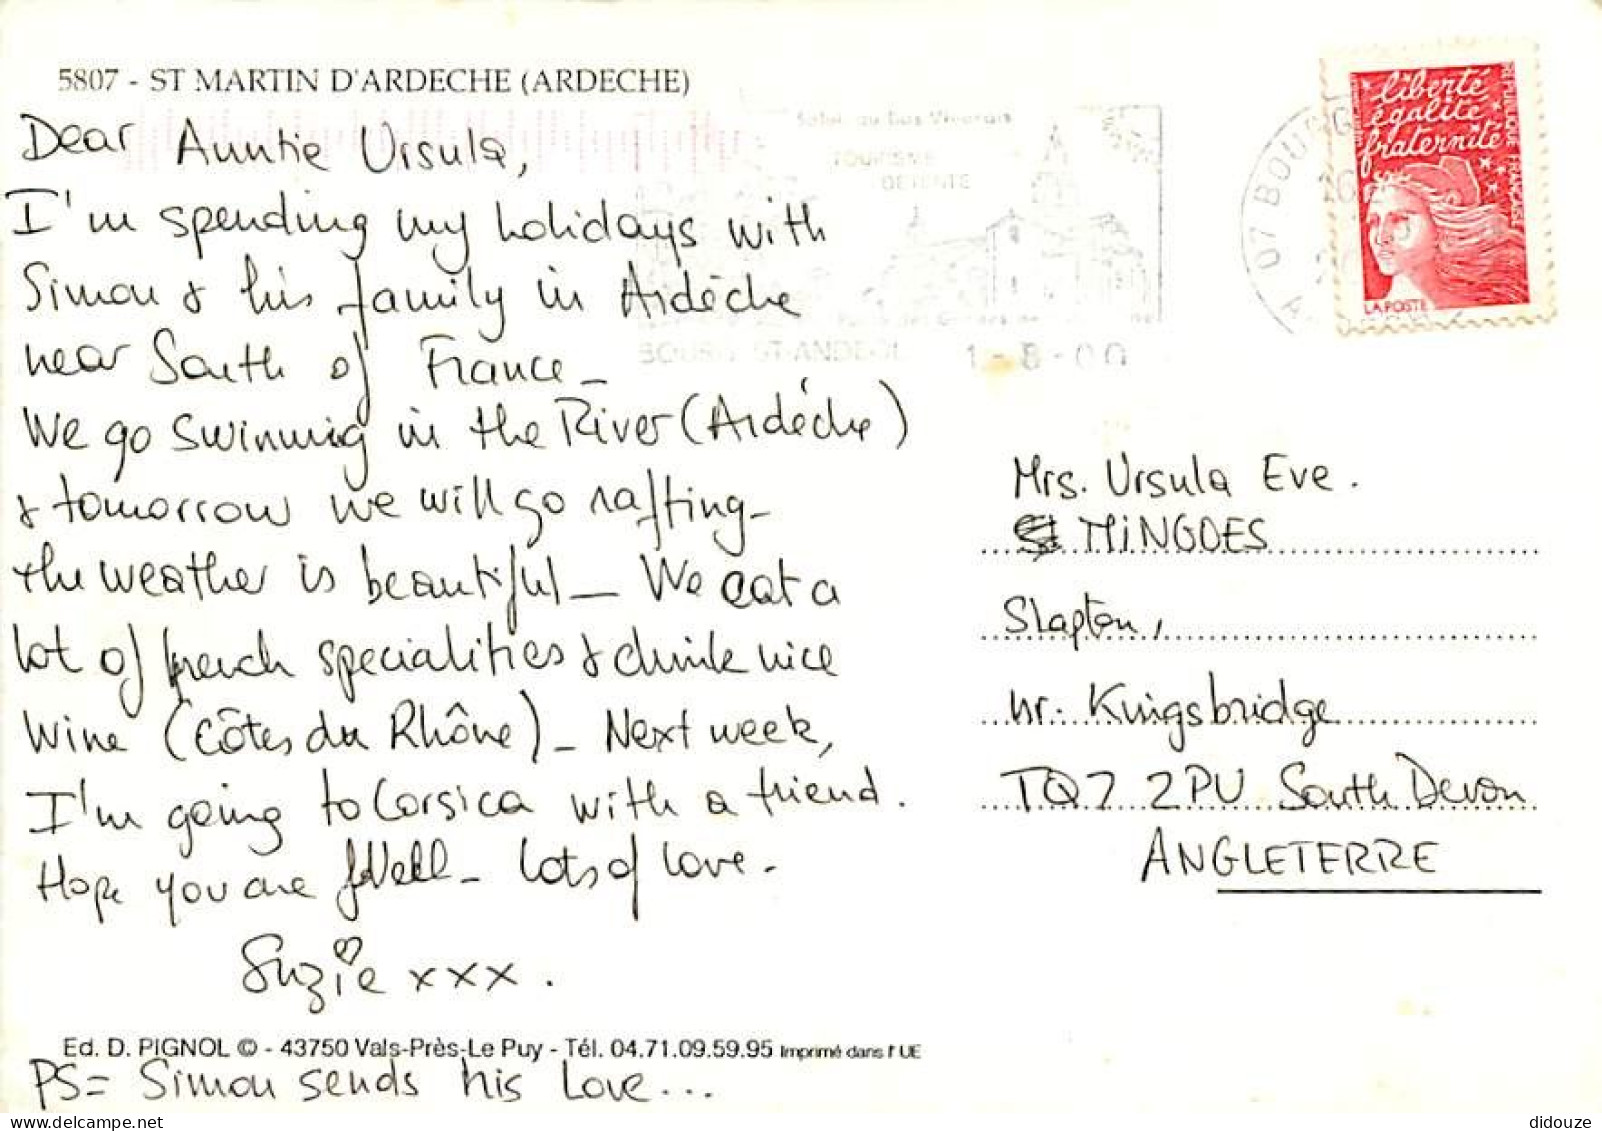 5807 - ST MARTIN D'ARDECHE (ARDECHE)
Dear Auntie Ursula,
I'm spending my holidays with
Simon & his family in Ardèche
near South of France _
We go swimming in the River (Ardèche)
& tomorrow we will go rafting _
the weather is beautiful _ We eat a
lot of french specialities & drink nice
wine (Côtes du Rhône) _ Next week,
I'm going to Corsica with a friend.
Hope you are Well _ lots of love.
Suzie xxx.
Ed. D. PIGNOL © - 43750 Vals-Près-Le Puy - Tél. 04.71.09.59.95 Imprimé dans l'UE
PS= Simon sends his Love...
TOURISME
DETENTE
BOURG ST-ANDEOL 1-8-00
07 BOURG
liberté
égalité
fraternité
REPUBLIQUE FRANÇAISE
LA POSTE
Mrs. Ursula Eve.
MINGOES
Slapton,
nr. Kingsbridge
TQ7 2PU South Devon
ANGLETERRE
didouze